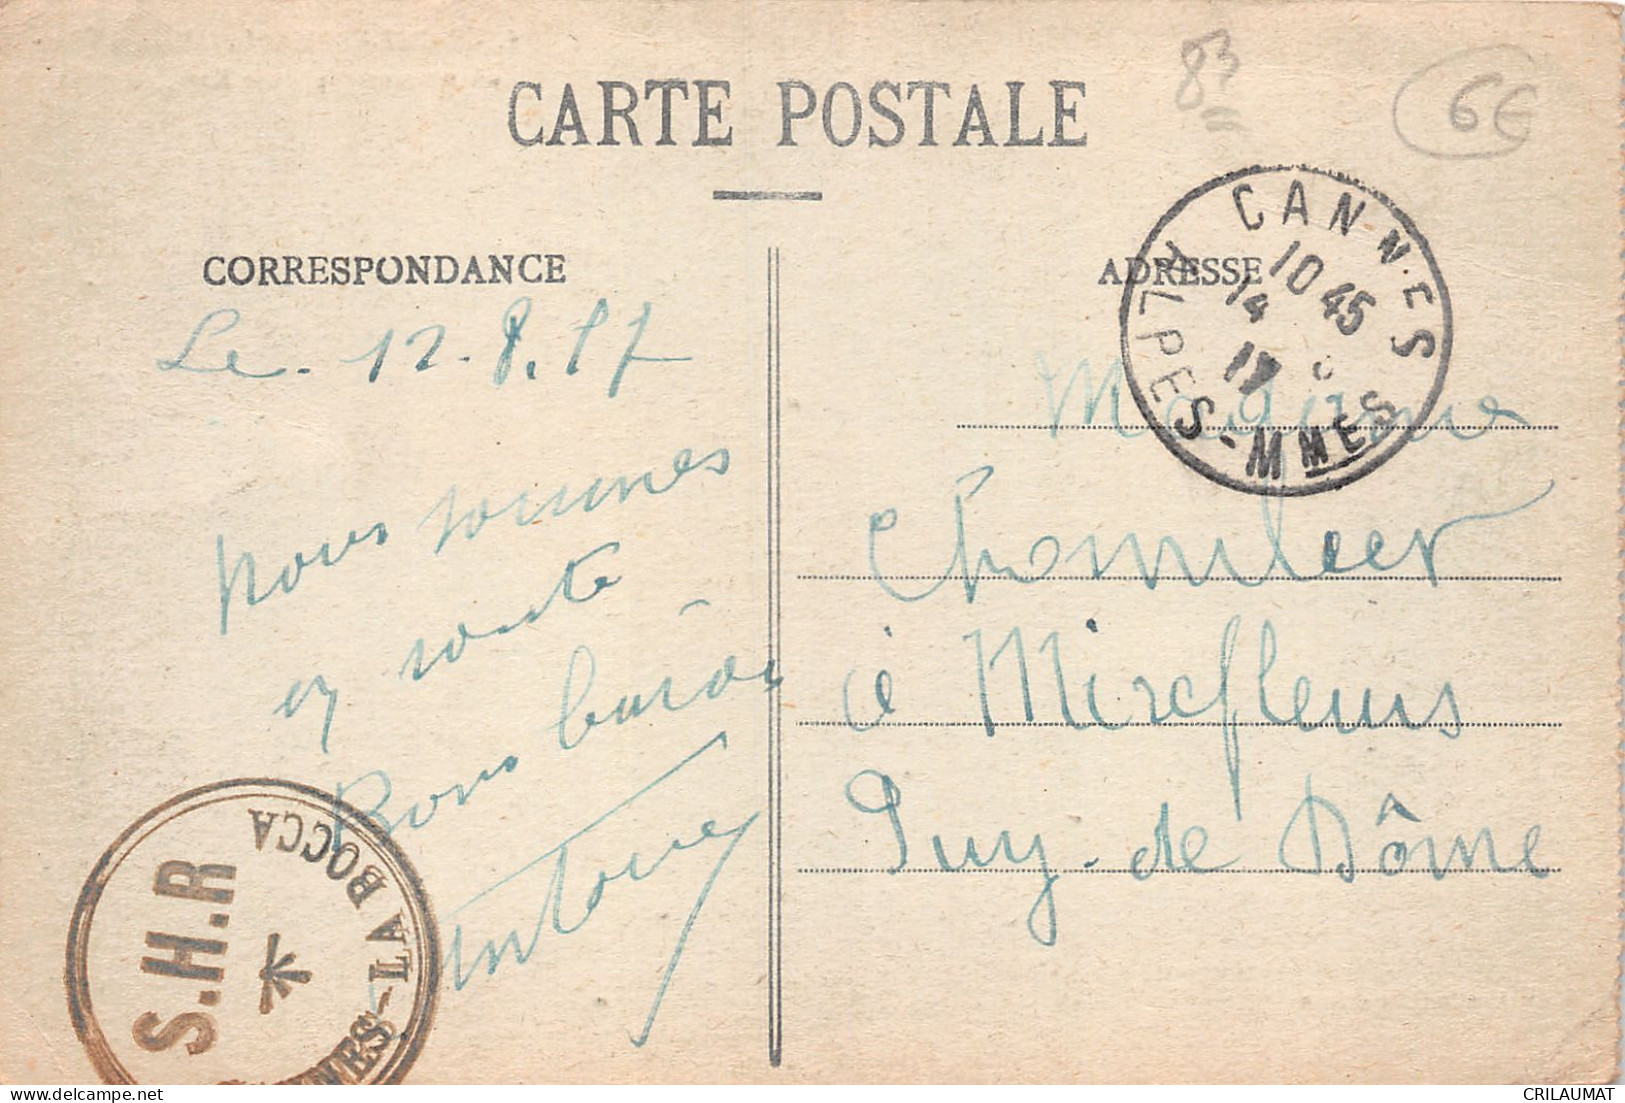 CARTE POSTALE
83
6€
CORRESPONDANCE
Le. 12.8.17
nous sommes
en route
Bons
Antoine
ADRESSE
CANNES
10 45
14
17
ALPES-MMES
Madame
à Mirefleurs
Puy-de Dôme
S.H.R
CANNES-LA BOCCA
CRILAUMAT